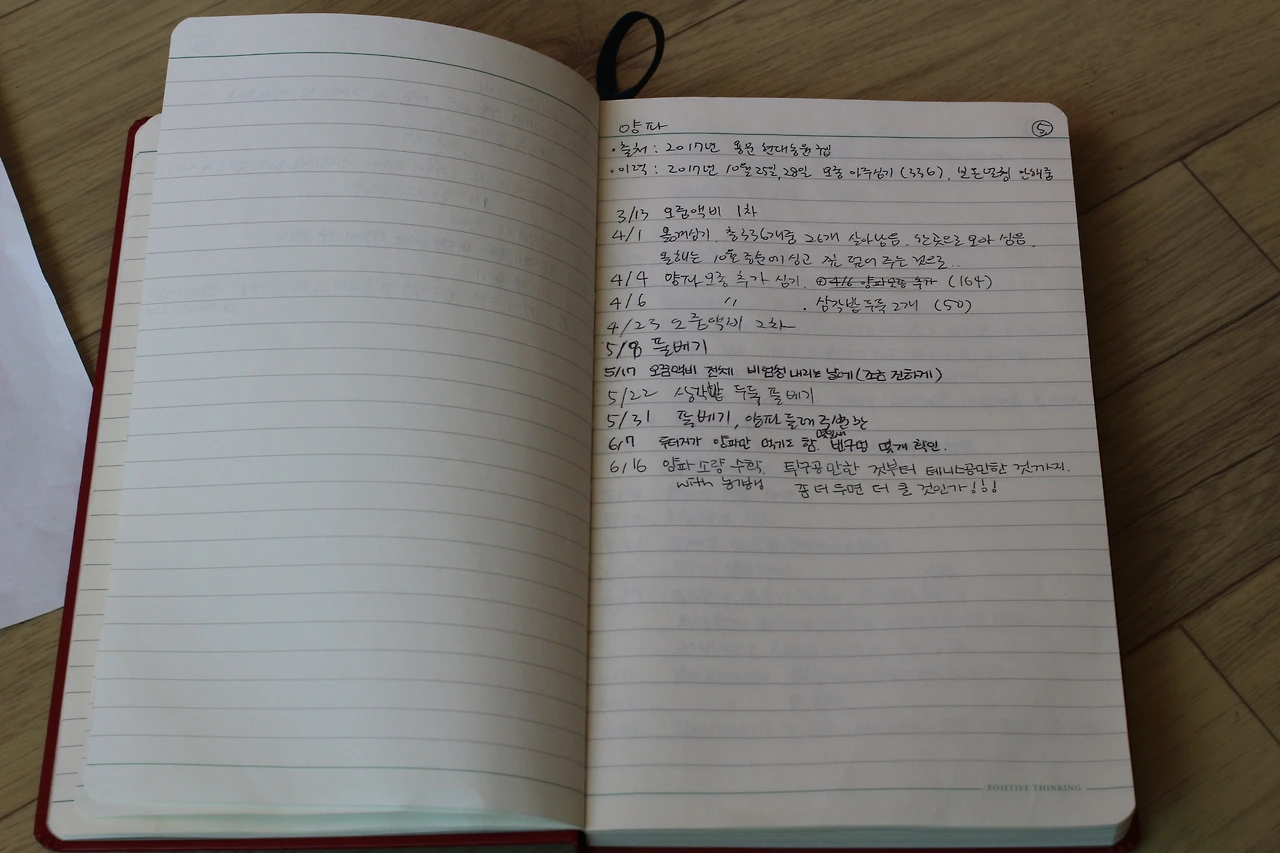 양파 ⑤
·출처 : 2017년 용문 현대농원
·이력 : 2017년 10월 25일, 28일 모종 아주심기 (336), 보온덮개 안해줌
3/13 오줌액비 1차
4/1 옮겨심기. 총 336개중 26개 살아남음. 한곳으로 모아 심음.
올해는 10월 중순에 심고 짚 덮어 주는 것으로..
4/4 양파모종 추가 심기. (164)
4/6 〃 . 삼각밭 두둑 2개 (50)
4/23 오줌액비 2차
5/8 풀베기
5/17 오줌액비 전체 비 엄청 내리는 날에 (조금 진하게)
5/22 삼각밭 두둑 풀베기
5/31 풀베기, 양파 둘레
6/7 두더지가 양파만 먹기도 함. 땅구멍 몇개 확인.
6/16 양파 소량 수확. 탁구공만한 것부터 테니스공만한 것까지.
with 좀 더 두면 더 클 것인가!!!
POSITIVE THINKING